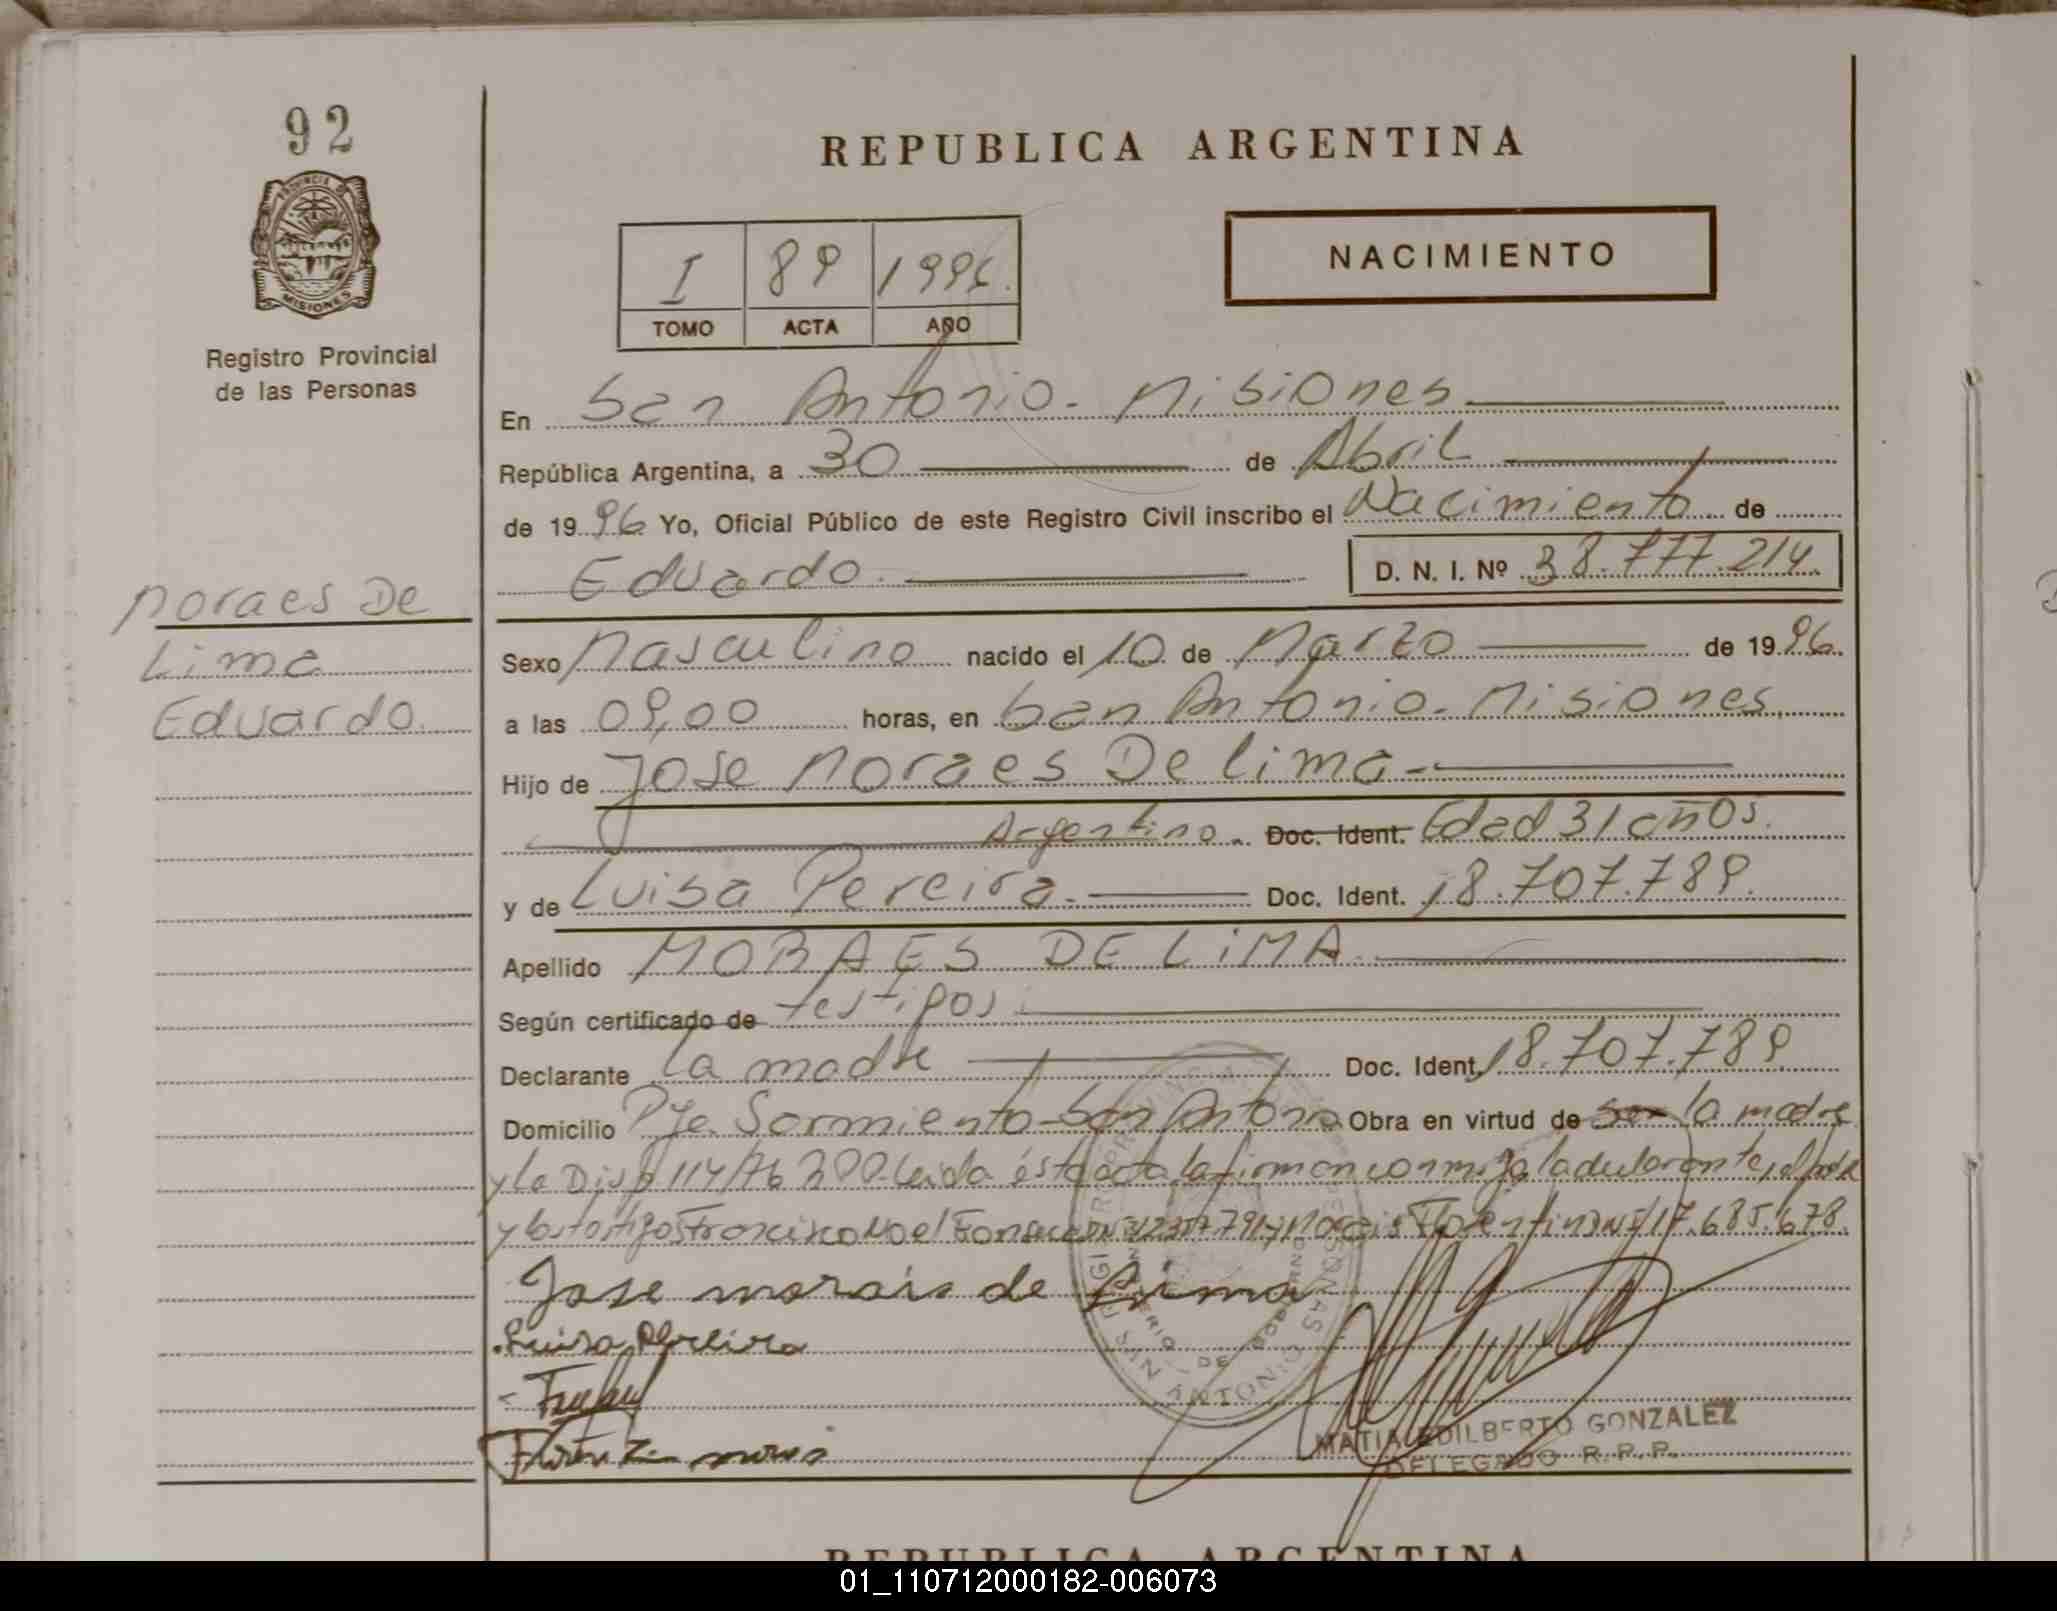 92
PROVINCIA DE
MISIONES
Registro Provincial
de las Personas
Moraes De
Lima
Eduardo.
REPUBLICA ARGENTINA
NACIMIENTO
I 89 1996.
TOMO ACTA AÑO
En San Antonio - Misiones
República Argentina, a 30 de Abril
de 1996 Yo, Oficial Público de este Registro Civil inscribo el Nacimiento de
Eduardo. D. N. I. Nº 38.777.214.
Sexo Masculino nacido el 10 de Marzo de 1996.
a las 09,00 horas, en San Antonio - Misiones.
Hijo de Jose Moraes De Lima -
Argentino. Doc. Ident. Edad 31 años.
y de Luisa Pereira. Doc. Ident. 18.707.789.
Apellido MORAES DE LiMA.
Según certificado de testigos.
Declarante la madre Doc. Ident. 18.707.789
Domicilio Pje. Sarmiento - San Antonio Obra en virtud de ser la madre
y la Disp 114/76 Leida ésta acta la firman conmigo la declarante, el padre
y los testigos Francisco Noel Fonseca y Morais Florentin DNI 17.685.678.
Jose morais de Lima
Luisa Pereira
Floren morais
SAN ANTONIO
MATIA EDILBERTO GONZALEZ
DELEGADO R.P.P.
REPUBLICA ARGENTINA
01_110712000182-006073